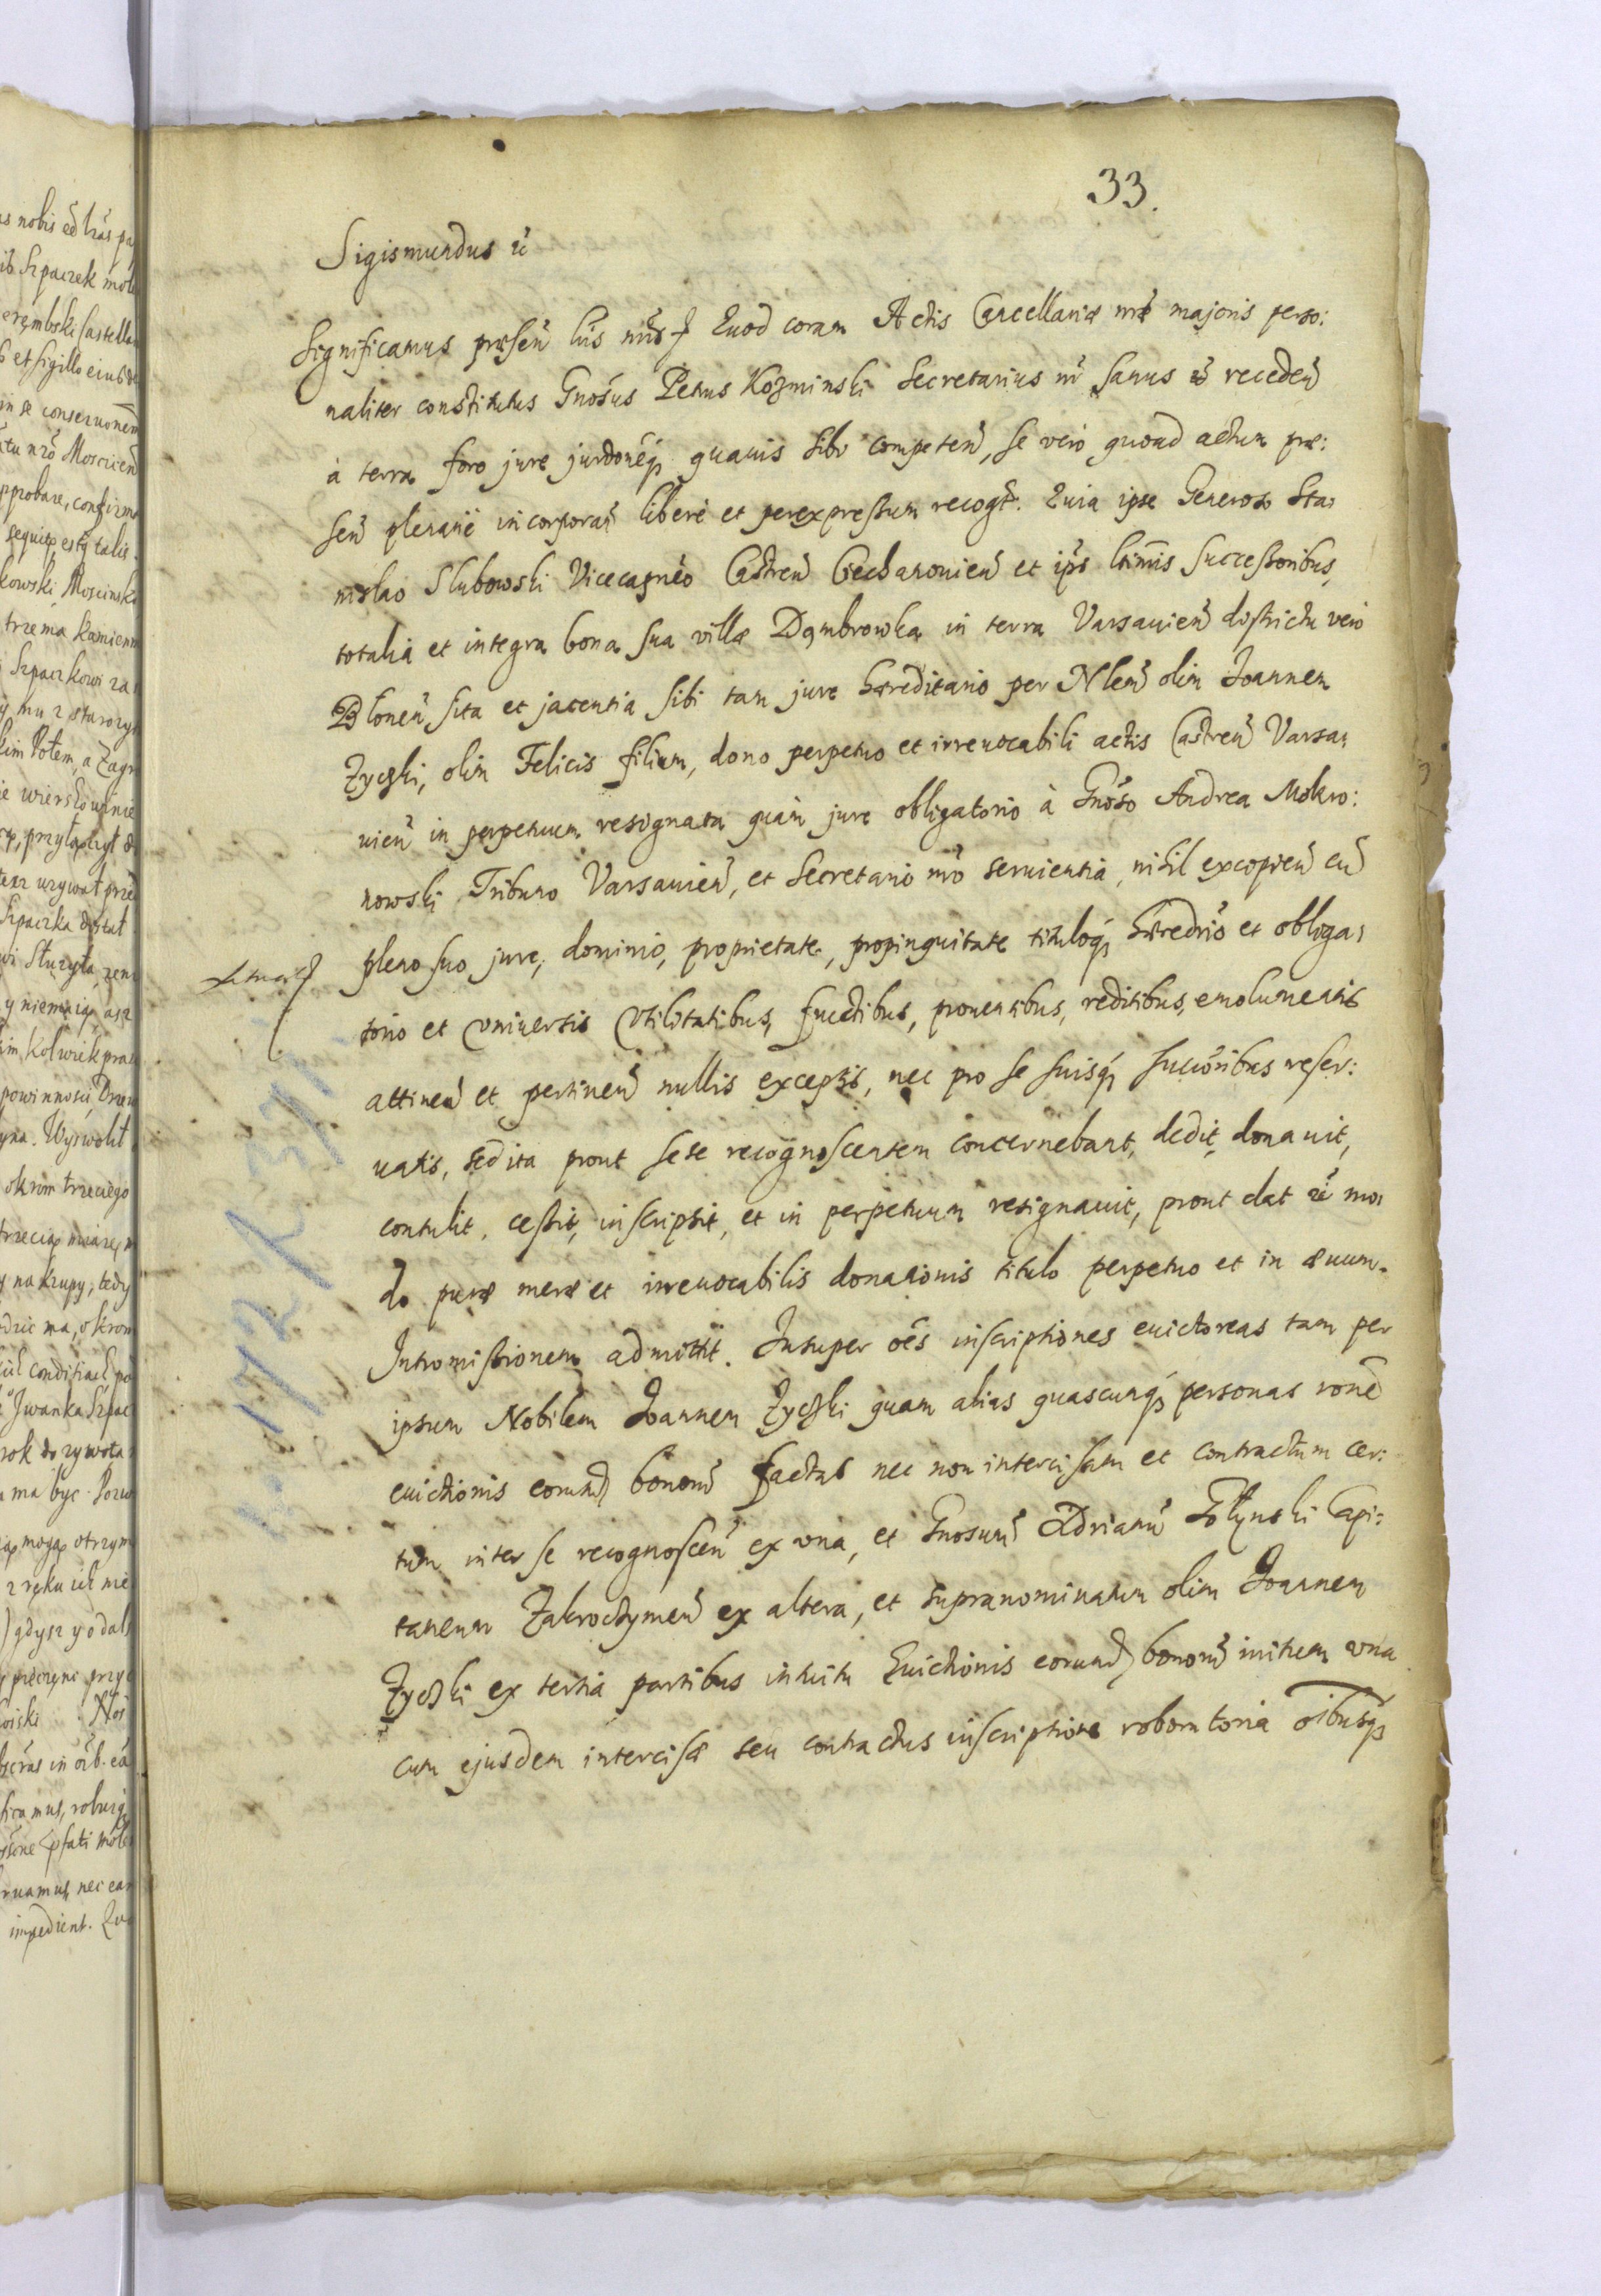 33.
Sigismundus &c
Significamus præsen̄ lr̄is nr̄is Quod coram Actis Cancellariæ nr̄æ majoris perso:
naliter constitutus Gnōsus Petrus Kozminski Secretarius nr̄ sanus &c receden̄
à terra foro jure jurdonēq; quavis sibi competen̄, se vero quoad actum præ:
sen̄ plenariè incorporan̄ liberè et perexpressum recogt̄. Quia ipse Generoso Sta:
nislao Slubowski Vicecapnēo Castren̄ Ciechanouien̄ et ip̄s ltīmis successoribus,
totalia et integra bona sua villæ Dąmbrowka in terra Varsauien̄ districtu vero
Blonen̄ sita et jacentia sibi tam jure hæreditario per Nlem̄ olim Joannem
Zyczki, olim Felicis filium, dono perpetuo et irreuocabili actis Castren̄ Varsa:
uien̄ in perpetuum resignata quàm jure obligatorio à Gnōso Andrea Mokro:
nowski Tribuno Varsauien̄, et Secretario nr̄o seruientia, nihil excipien̄ cū
pleno suo jure, dominio, proprietate, propinquitate tituloq; hæredrīo et obliga:
torio et vniuersis vtilitatibus, fructibus, prouentibus, reditibus, emolumentis
attinen̄ et pertinen̄ nullis exceptis, nec pro se suisq; succōribus reser:
uatis, sed ita prout sese recognoscentem concernebant, dedit, donauit,
contulit, cessit, inscripsit, et in perpetuum resignauit, prout dat &c mo:
do puræ meræ et irreuocabilis donationis titulo perpetuo et in æuum.
Intromissionem admittit. Insuper oēs inscriptiones euictoreas tam per
ipsum Nobilem Joannem Zyczki quam alias quascunq; personas ronē
euictionis eorund) bonorū factas nec non intercisam et contractum cer:
tum inter se recognoscen̄ ex vna, et Gnosum̄ Adrianū Gołynski Capi:
taneum Zakroczymen̄ ex altera, et supranominatum olim Joannem
Zyczki ex tertia partibus intuitu Euictionis eorund) bonorū initum vna
cum ejusdem intercisæ seu contractus inscriptione roboratoria oībusq;